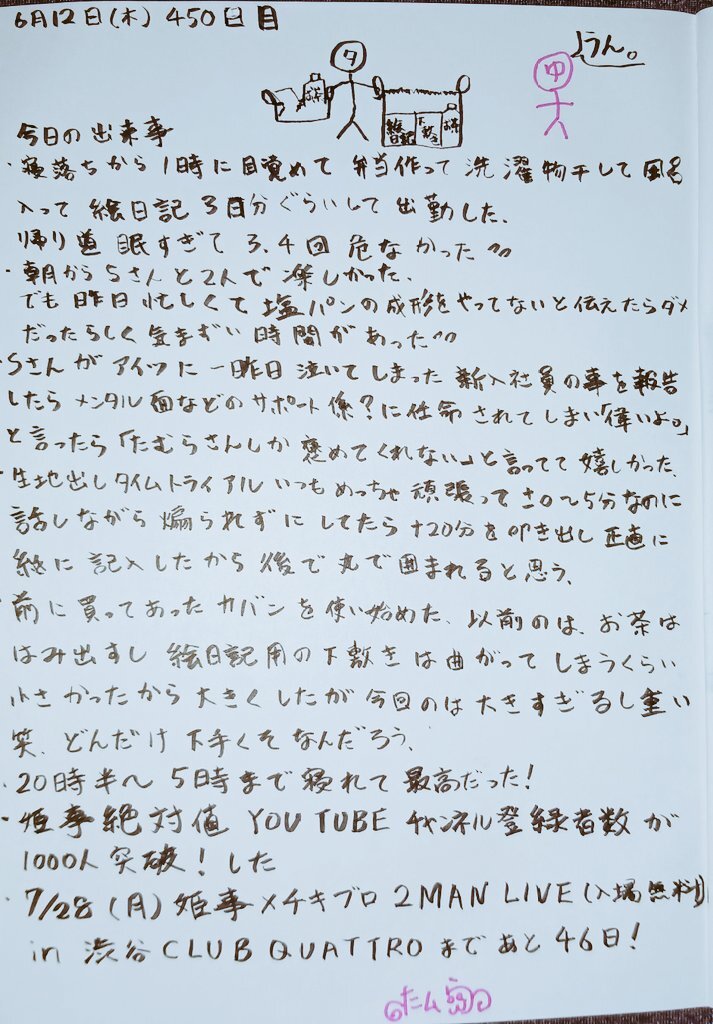 6月12日(木) 450日目
タ
お茶
絵日記
下敷き
お茶
ゆ
うん。
今日の出来事
・寝落ちから1時に目覚めて 弁当作って 洗濯物干して 風呂
入って 絵日記 3日分ぐらいして 出勤した、
帰り道 眠すぎて 3、4回 危なかった
・朝からSさんと2人で 楽しかった、
でも 昨日 忙しくて 塩パンの成形をやってないと伝えたらダメ
だったらしく 気まずい 時間があった
・Sさんが アイツに 一昨日 泣いてしまった 新入社員の事を報告
したら メンタル面などの サポート係?に任命されてしまい「偉いよ。」
と言ったら「たむらさんしか 褒めてくれない」と言ってて 嬉しかった、
・生地出しタイムトライアル いつもめっちゃ 頑張って ±0〜5分なのに
話しながら 煽られずに してたら +20分を 叩き出し 正直に
紙に 記入したから 後で 丸で囲まれると思う、
・前に買ってあった カバン を使い始めた、以前のは、お茶は
はみ出すし 絵日記用の下敷きは曲がって しまうくらい
小さかったから 大きくしたが 今回のは大きすぎるし重い
笑、どんだけ 下手くそなんだろう、
・20時半〜5時まで 寝れて 最高だった!
・姫事絶対値 YOUTUBE チャンネル登録者数が
1000人 突破!した
・7/28 (月) 姫事×チキブロ 2MAN LIVE (入場無料)
in 渋谷 CLUB QUATTRO まで あと 46日!